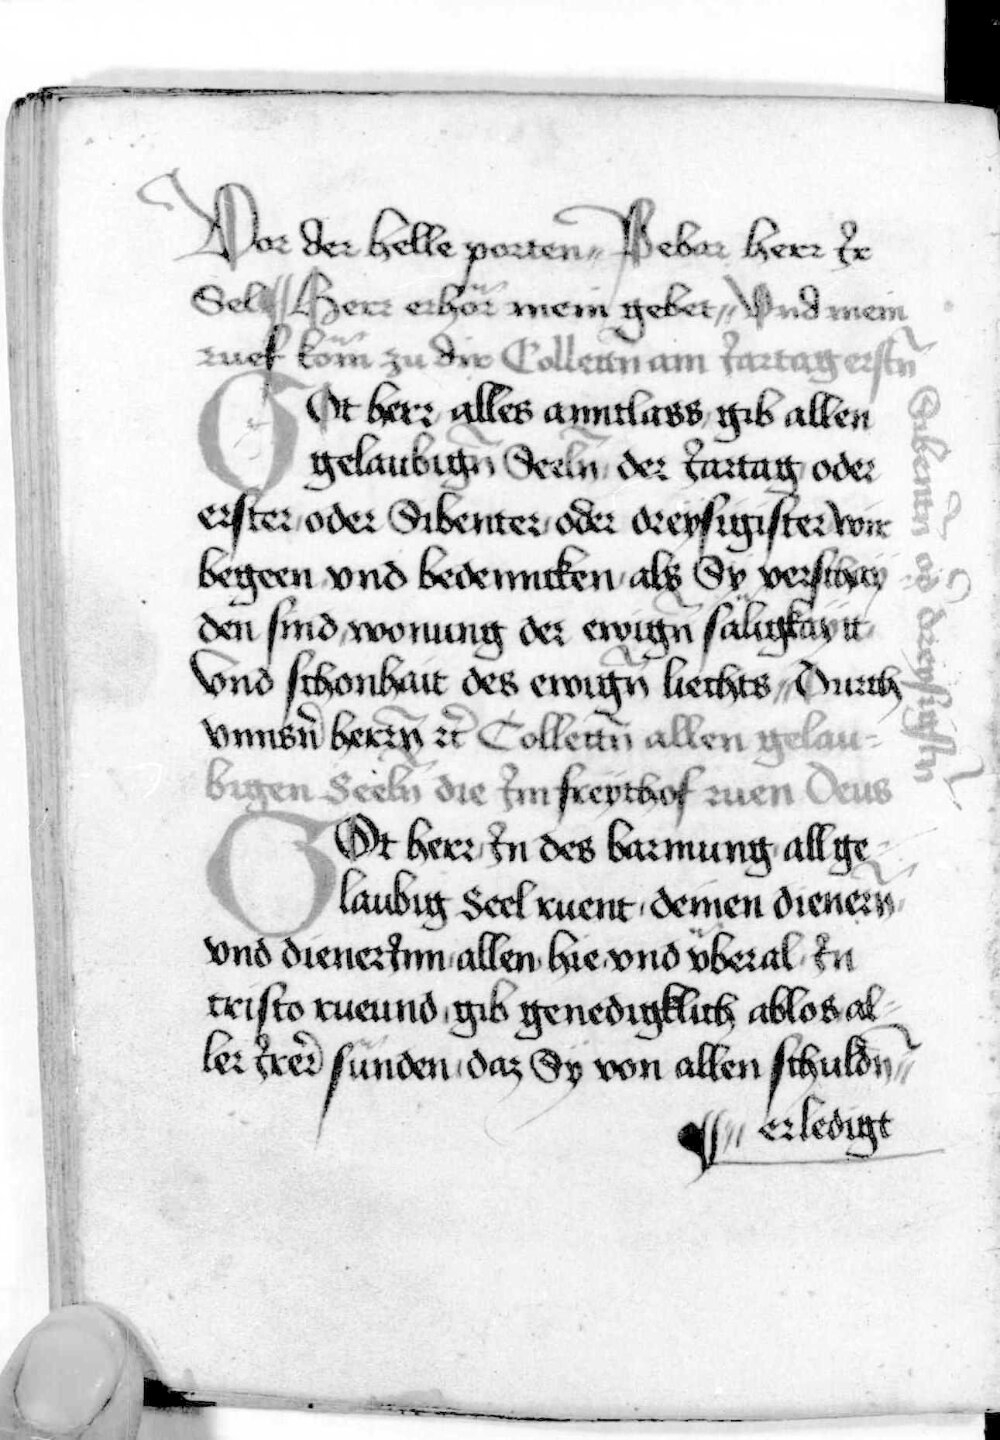 Vor der helle porten~ // Bebar herr Ir
Sel // Herr erhör mein gebet // Vnd mein
ruef köm zu dir Collectn̄ am Jartag erstn̄
GOt herr alles anntlass gib allen
gelaubign̄ Seeln̄ der Jartag oder
erster oder Sibenter oder dreysigister wir
begeen vnd bedenncken als Sÿ verschay
den sind wonung der ewign̄ säligkayt
Vnd schonhait des ewign̄ liechts // Durch
vnnsn̄ herrn̄ rc̄ Collectn̄ allen gelau-
bigen Seeln̄ die Im freÿthof ruen Deus
GOt herr In des barmung all ge-
laubig Seel ruent deinen dienern̄
vnd dienerInn allen hie vnd vberal In
cristo rueund gib genedigklich ablos al-
ler Irer̄ sünden daz Sÿ von allen schuldn̄ //
erledigt
Sibentn̄ od̄ dreysigstn̄